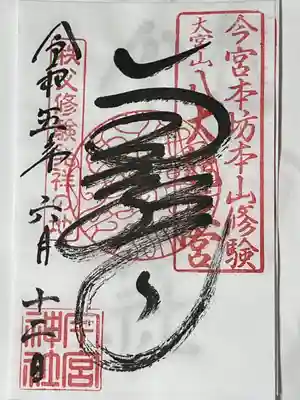 今宮本坊本山修験
大宮山
八大
宮
秩父修験発祥の地
令和五年六月十二日
今宮
神社